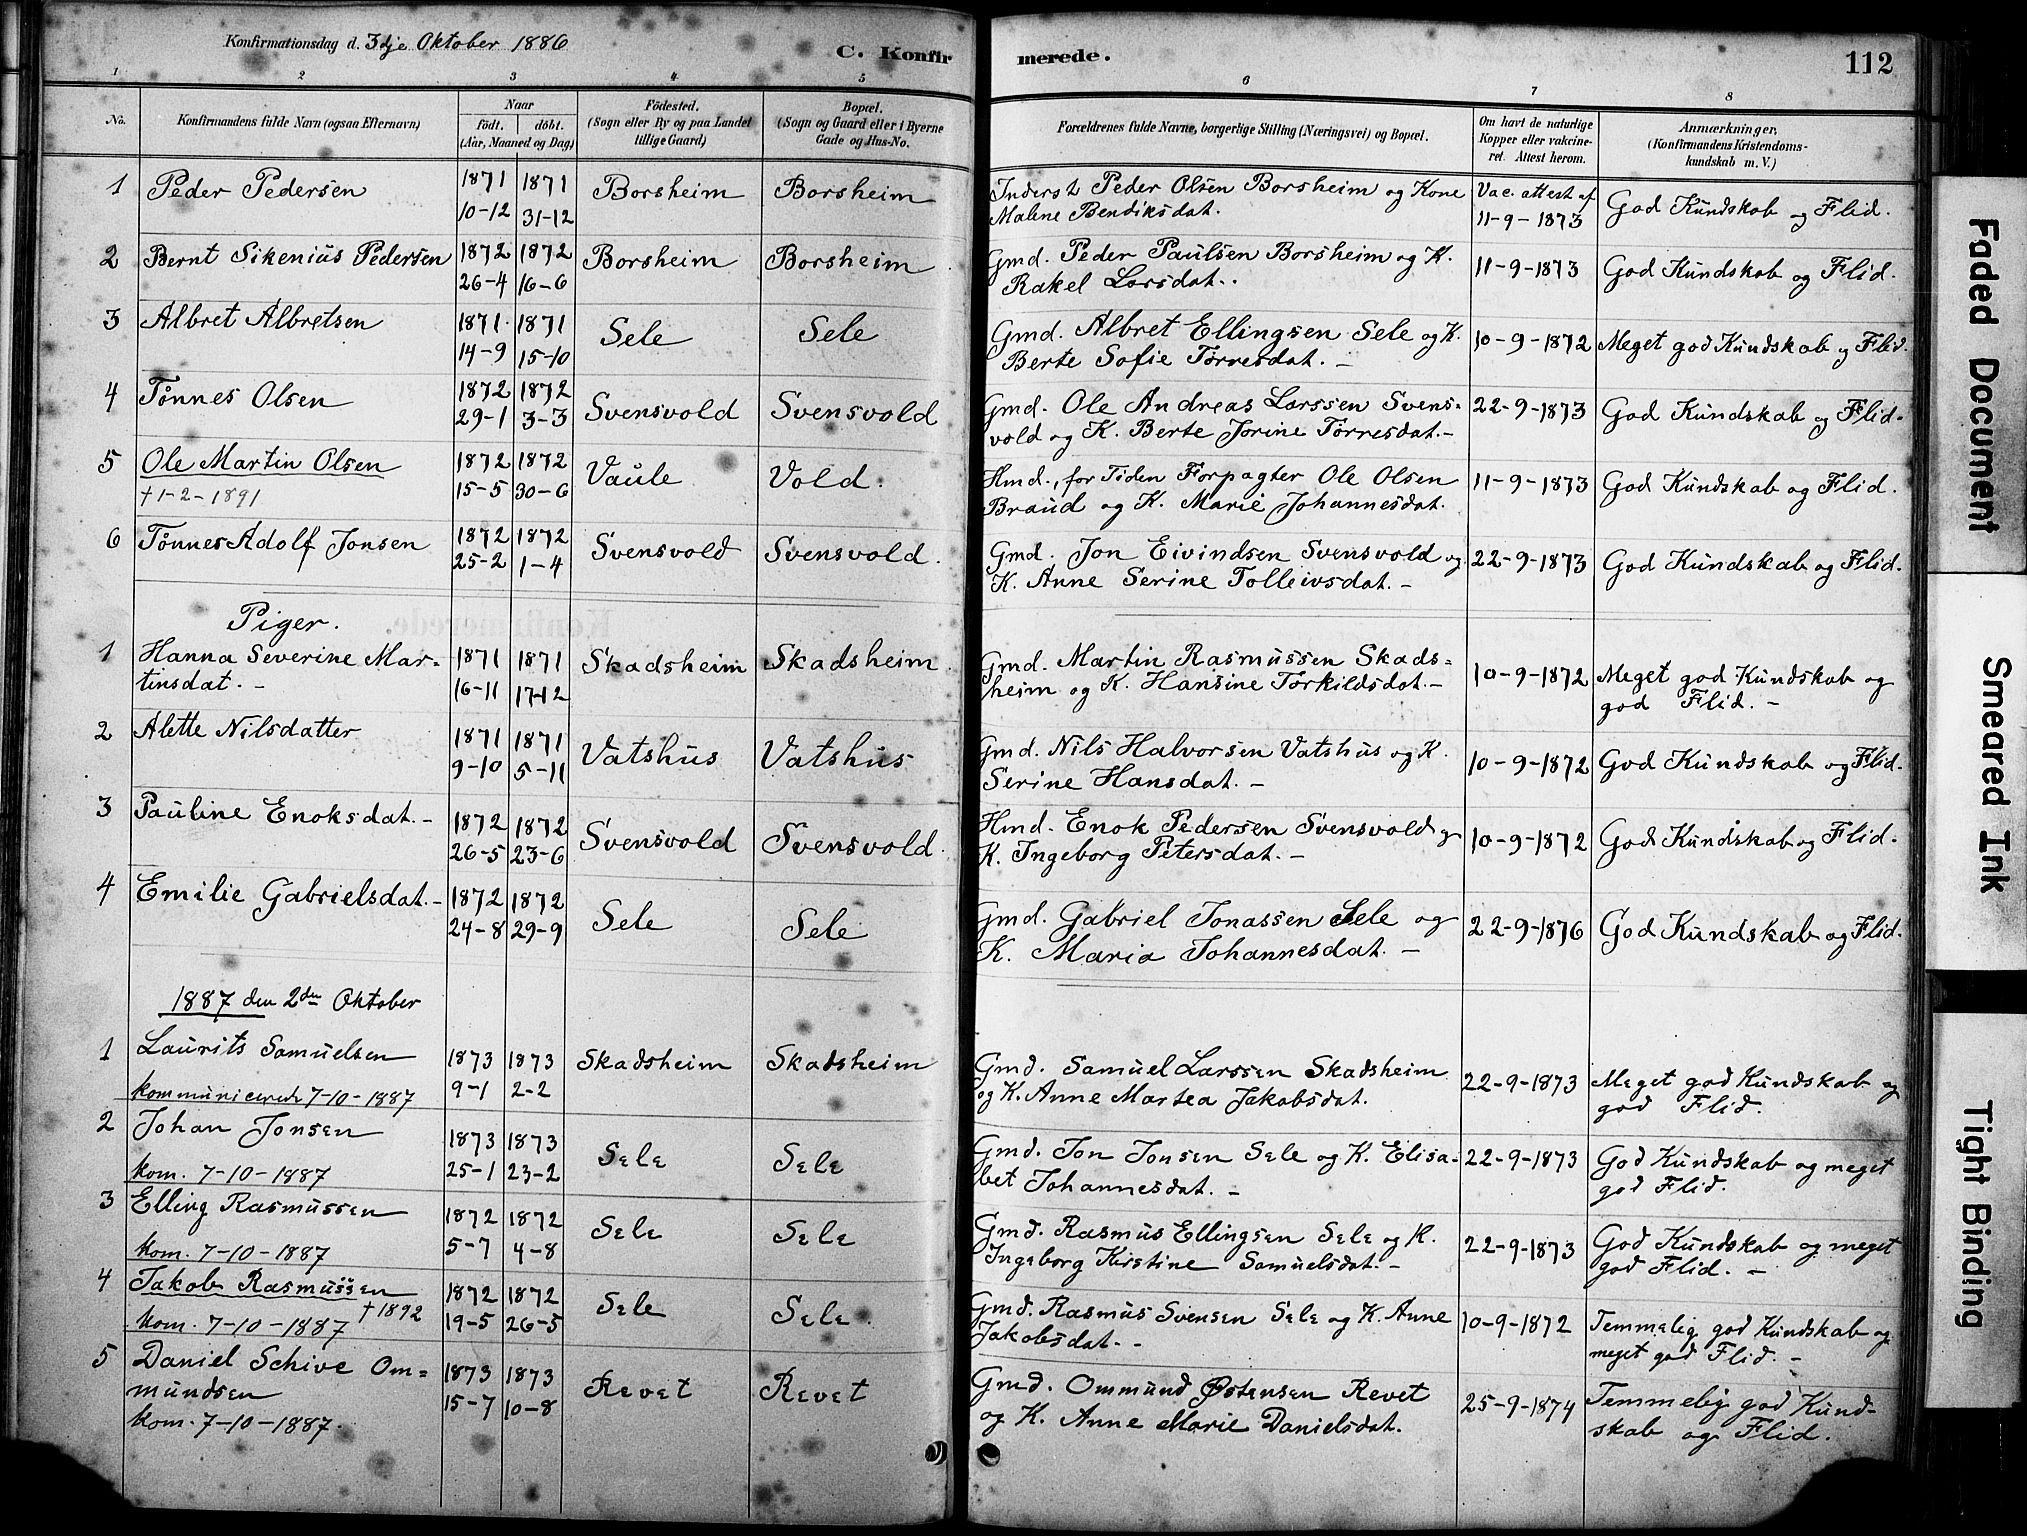 Konfirmationsdag d. 3dje Oktober 1886
C. Konfir
merede.
112
1 2 3 4 5 6 7 8
No.
Konfirmandens fulde Navn (ogsaa Efternavn)
Naar
födt. döbt.
(Aar, Maaned og Dag)
Födested.
(Sogn eller By og paa Landet
tillige Gaard)
Bopæl.
(Sogn og Gaard eller i Byerne
Gade og Hus-No.
Forældrenes fulde Navne, borgerlige Stilling (Næringsvei) og Bopæl.
Om havt de naturlige
Kopper eller vakcine-
ret. Attest herom.
Anmærkninger,
(Konfirmandens Kristendoms-
kundskab m. V.)
1 Peder Pedersen 1871 1871 Borsheim Borsheim Inderst Peder Olsen Borsheim og Kone Vac. attest af God Kundskab og Flid.
10-12 31-12 Malene Bendiksdat. 11-9-1873
2 Bernt Sikenius Pedersen 1872 1872 Borsheim Borsheim Gmd. Peder Paulsen Borsheim og K. 11-9-1873 God Kundskab og Flid.
26-4 16-6 Rakel Larsdat.
3 Albret Albretsen 1871 1871 Sele Sele Gmd. Albret Ellingsen Sele og K. 10-9-1872 Meget god Kundskab og Flid.
14-9 15-10 Berte Sofie Tørresdat. -
4 Tønnes Olsen 1872 1872 Svensvold Svensvold Gmd. Ole Andreas Larssen Svens= 22-9-1873 God Kundskab og Flid.
29-1 3-3 vold og K. Berte Jorine Tørresdat.-
5 Ole Martin Olsen 1872 1872 Vaule Vold. Hmd., for Tiden Forpagter Ole Olsen 11-9-1873 God Kundskab og Flid.
†1-2-1891 15-5 30-6 Braud og K. Marie Johannesdat.
6 Tønnes Adolf Jonsen 1872 1872 Svensvold Svensvold. Gmd. Jon Eivindsen Svensvold og 22-9-1873 God Kundskab og Flid.
25-2 1-4 K. Anne Serine Tolleivsdat. -
Piger.
1 Hanna Severine Mar= 1871 1871 Skadsheim Skadsheim Gmd. Martin Rasmussen Skads= 10-9-1872 Meget god Kundskab og
tinsdat. - 16-11 17-12 heim og K. Hansine Torkildsdat.- god Flid. -
2 Alette Nilsdatter 1871 1871 Vatshus Vatshus Gmd. Nils Halvorsen Vatshus og K. 10-9-1872 God Kundskab og Flid.
9-10 5-11 Serine Hansdat. -
3 Pauline Enoksdat. - 1872 1872 Svensvold Svensvold. Hmd. Enok Pedersen Svensvold og 10-9-1872 God Kundskab og Flid.
26-5 23-6 K. Ingeborg Petersdat. -
4 Emilie Gabrielsdat. - 1872 1872 Sele Sele Gmd. Gabriel Jonassen Sele og 22-9-1876 God Kundskab og Flid.
24-8 29-9 K. Maria Johannesdat. -
1887 den 2den Oktober
1 Laurits Samuelsen 1873 1873 Skadsheim Skadsheim Gmd. Samuel Larssen Skadsheim 22-9-1873 Meget god Kundskab og
kommunicerede 7-10-1887 9-1 2-2 og K. Anne Martea Jakobsdat. god Flid.
2 Johan Jonsen 1873 1873 Sele Sele Gmd. Jon Jonsen Sele og K. Elisa= 22-9-1873 God Kundskab og meget
kom. 7-10-1887 25-1 23-2 bet Johannesdat. - god Flid.
3 Elling Rasmussen 1872 1872 Sele Sele Gmd. Rasmus Ellingsen Sele og K. 22-9-1873 God Kundskab og meget
kom. 7-10-1887 5-7 4-8 Ingeborg Kirstine Samuelsdat. - god Flid. -
4 Jakob Rasmussen 1872 1872 Sele Sele. Gmd. Rasmus Svensen Sele og K. Anne 10-9-1872 Temmelig god Kundskab og
kom. 7-10-1887 †1892 19-5 26-5 Jakobsdat. - meget god Flid. -
5 Daniel Schive Om= 1873 1873 Revet Revet Gmd. Ommund Østensen Revet 25-9-1874 Temmelig god Kund=
mundsen 15-7 10-8 og K. Anne Marie Danielsdat. skab og Flid.
kom. 7-10-1887.
Faded Document
Smeared Ink
Tight Binding